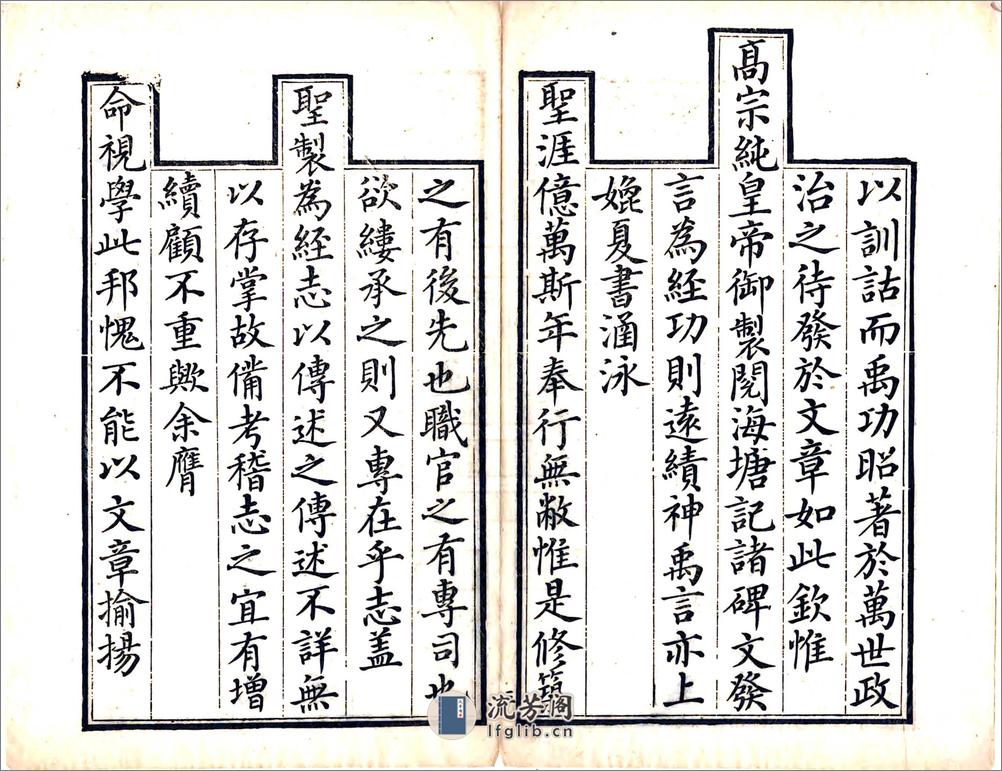 以訓詁而禹功昭著於萬世政
治之待發於文章如此欽惟
髙宗純皇帝御製閱海塘記諸碑文發
言為經功則遠績神禹言亦上
媲夏書涵泳
聖涯億萬斯年奉行無敝惟是修築
之有後先也職官之有專司也
欲縷承之則又專在乎志盖
聖製為經志以傳述之傳述不詳無
以存掌故備考稽志之宜有增
續顧不重歟余膺
命視學此邦愧不能以文章揄揚
流芳閣
lfglib.cn